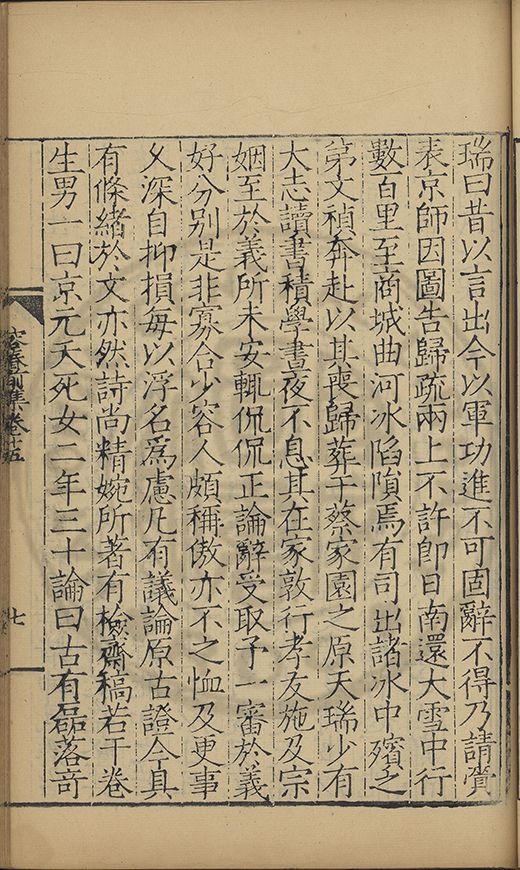 瑞曰昔以言出今以軍功進不可固辭不得乃請賫
表京師因圖告歸疏兩上不許卽日南還大雪中行
數百里至商城曲河氷陷隕焉有司出諸氷中殯之
第文楨奔赴以其喪歸葬于蔡家園之原天瑞少有
大志讀書積學晝夜不息其在家敦行孝友施及宗
姻至於義所未安輒侃侃正論辭受取予一審於義
好分别是非寡合少容人頗稱傲亦不之恤及更事
乆深自抑損每以浮名爲慮凡有議論原古證今具
有條緒於文亦然詩尚精婉所著有檢齋稿若干卷
生男一曰京元夭死女二年三十論曰古有磊落竒
前集卷十五
七